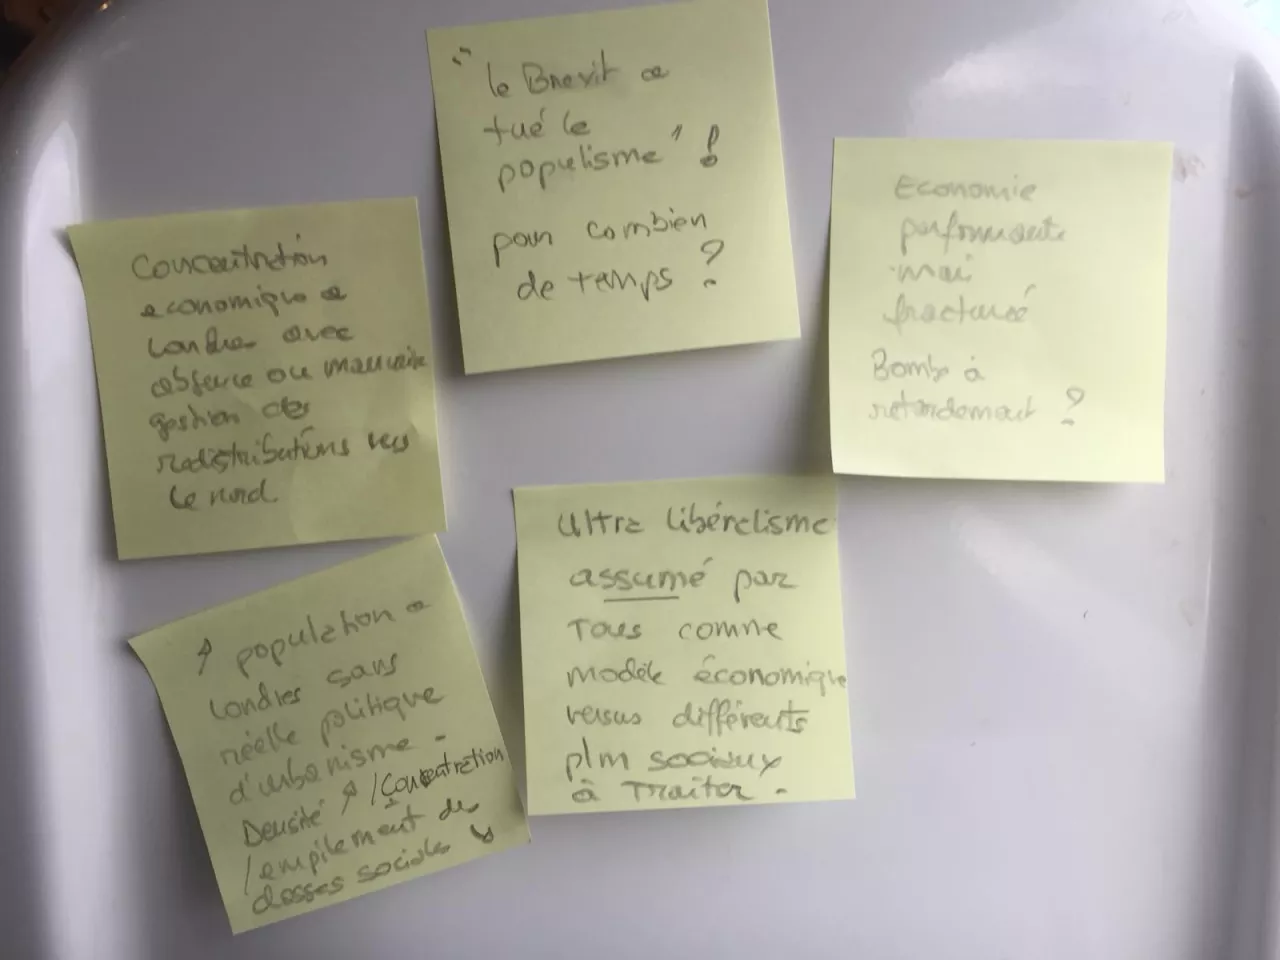 "le Brexit a
tué le
populisme" !
pour combien
de temps ?
Economie
performante
mai
fracturé
Bombe à
retardement ?
Concentration
economique a
Londres avec
absence ou mauvaise
gestion des
redistributions vers
le nord.
Ultra libéralisme
assumé par
Tous comme
modèle économique
versus différents
plm sociaux
à Traiter.
↗ population a
Londres sans
réelle politique
d'urbanisme -
Densité ↗ / Concentration
/ empilement des
classes sociales ↘